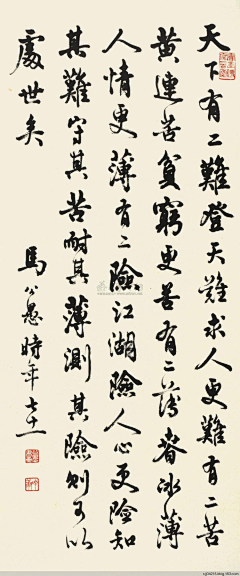 天下有二難登天難求人更難有二苦
黃連苦貧窮更苦有二薄春冰薄
人情更薄有二險江湖險人心更險知
其難守其苦耐其薄測其險則可以
處世矣
馬公愚時年七十一